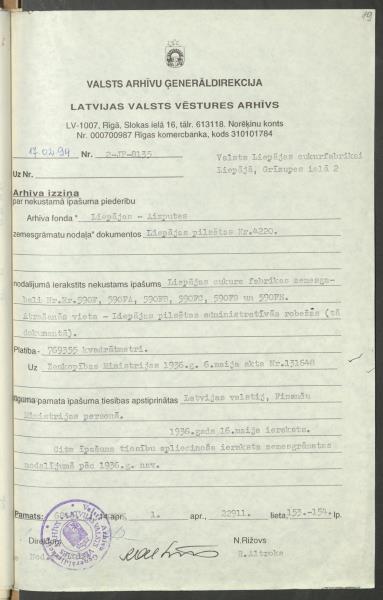 VALSTS ARHĪVU ĢENERĀLDIREKCIJA
LATVIJAS VALSTS VĒSTURES ARHĪVS
LV-1007, Rīgā, Slokas ielā 16, tālr. 613118. Norēķinu konts
Nr. 000700987 Rīgas komercbanka, kods 310101784
17.02.94 Nr. 2-JP-8135
Valsts Liepājas cukurfabrikai
Uz Nr.
Liepājā, Grīzupes ielā 2
Arhīva izziņa
par nekustamā īpašuma piederību
Arhīva fonda "Liepājas - Aizputes
zemesgrāmatu nodaļa" dokumentos Liepājas pilsētas Nr.4220.
nodalījumā ierakstīts nekustams īpašums Liepājas cukura fabrikas zemesga-
bali Nr.Nr.590F, 590FA, 590FB, 590FC, 590FD un 590FH.
Atrašanās vieta - Liepājas pilsētas administratīvās robežās (tā
dokumentā).
Platība- 769355 kvadrātmetri.
Uz Zemkopības Ministrijas 1936.g. 6.maija akta Nr.131648
līguma pamata īpašuma tiesības apstiprinātas Latvijas valstij, Finanšu
Ministrijas personā.
1936.gada 16.maija ieraksts.
Cits īpašuma tiesību apliecinošs ieraksts zemesgrāmatas
nodalījumā pēc 1936.g. nav.
Pamats: 1. apr., 22911. lieta, 153.-154. lp.
Direktors N.Rižovs